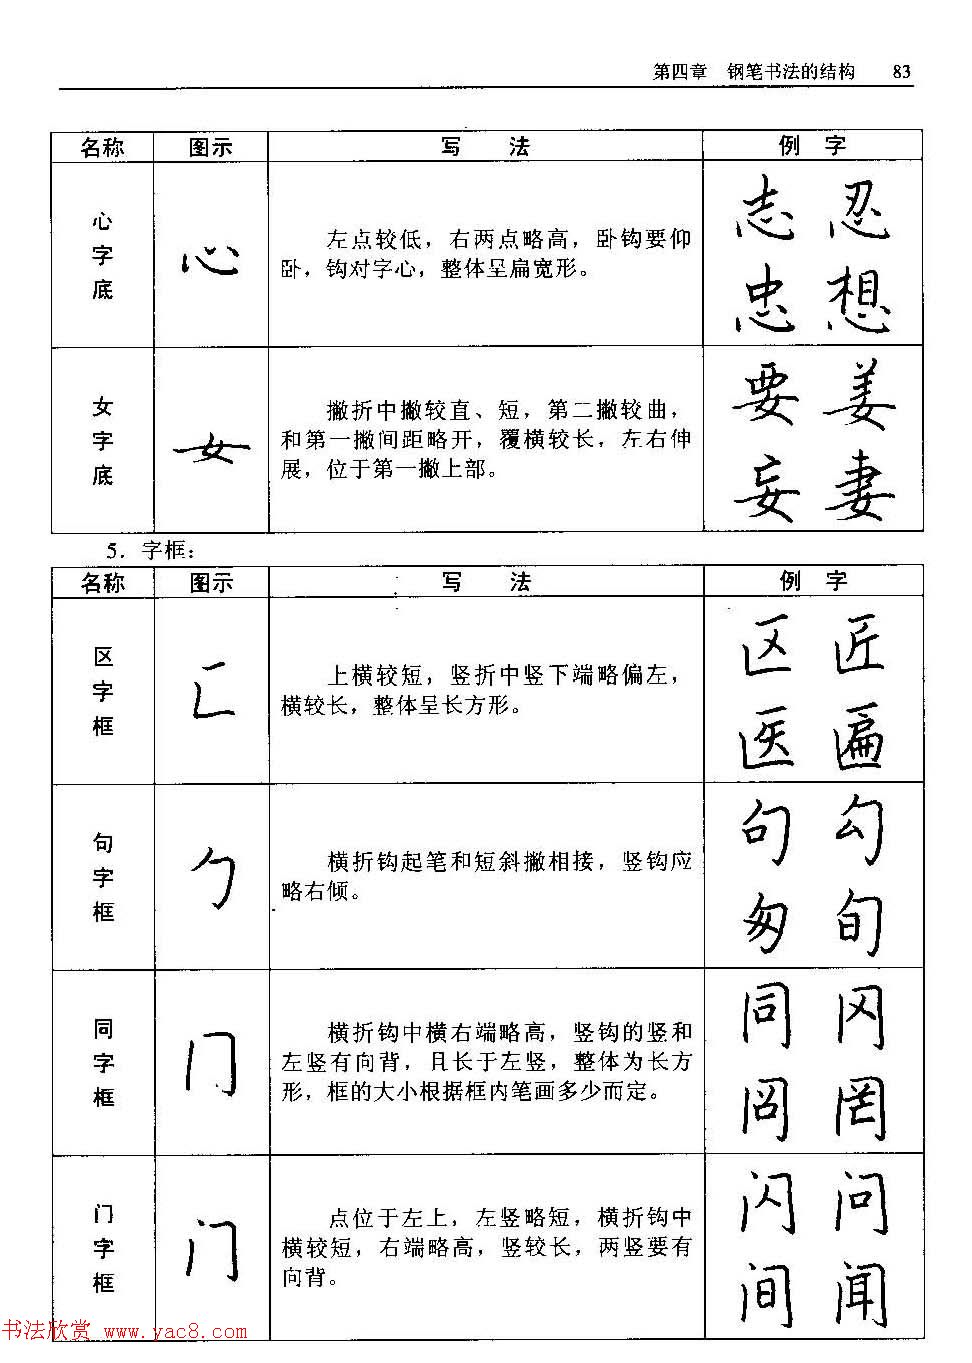 第四章 钢笔书法的结构 83
名称 图示 写 法 例 字
心字底
心
左点较低，右两点略高，卧钩要仰
卧，钩对字心，整体呈扁宽形。
志 忍
忠 想
女字底
女
撇折中撇较直、短，第二撇较曲，
和第一撇间距略开，覆横较长，左右伸
展，位于第一撇上部。
要 姜
妄 妻
5．字框：
名称 图示 写 法 例 字
区字框
匚
上横较短，竖折中竖下端略偏左，
横较长，整体呈长方形。
区 匠
医 匾
句字框
勹
横折钩起笔和短斜撇相接，竖钩应
略右倾。
句 勾
匆 旬
同字框
冂
横折钩中横右端略高，竖钩的竖和
左竖有向背，且长于左竖，整体为长方
形，框的大小根据框内笔画多少而定。
同 冈
罔
门字框
门
点位于左上，左竖略短，横折钩中
横较短，右端略高，竖较长，两竖要有
向背。
闪 问
间 闻
书法欣赏 www.yac8.com